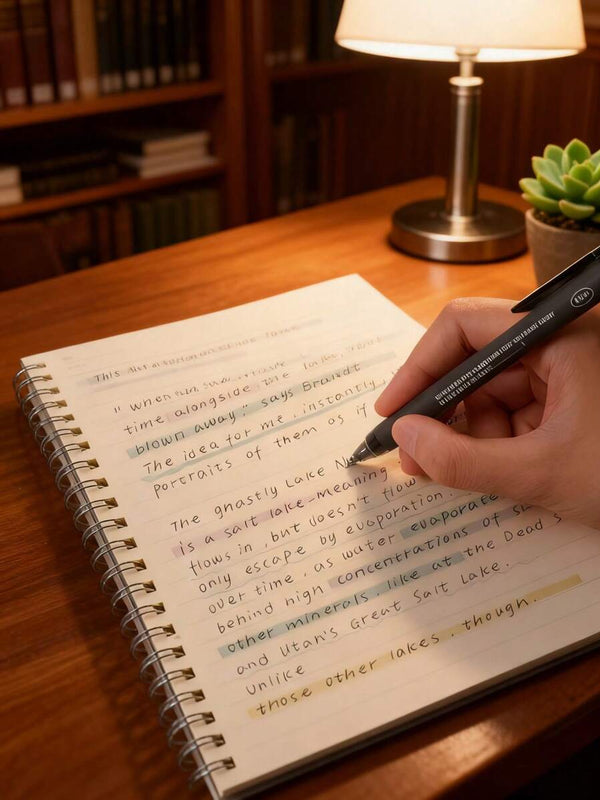 This
" when
time alongside the lake,
blown away," says Braidt
The idea for me, instantly,
portraits of them as if
The gnastly Lake N
is a salt lake-meaning
flows in, but doesn't flow
only escape by evaporation.
over time, as water evaporate
behind high concentrations of
other minerals, like at the Dead S
and Utan's Great Salt Lake.
Unlike
those other lakes, though.